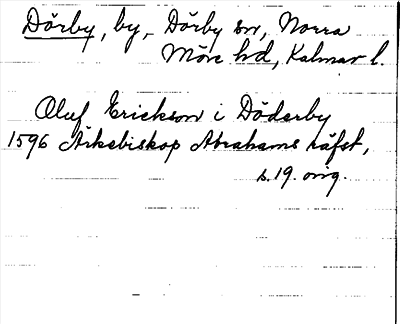 Dörby, by, Dörby sn, Norra
Möre hd, Kalmar l.
Oluf Erickson i Döderby
1596 Ärkebiskop Abrahams räfst,
s. 19. orig.